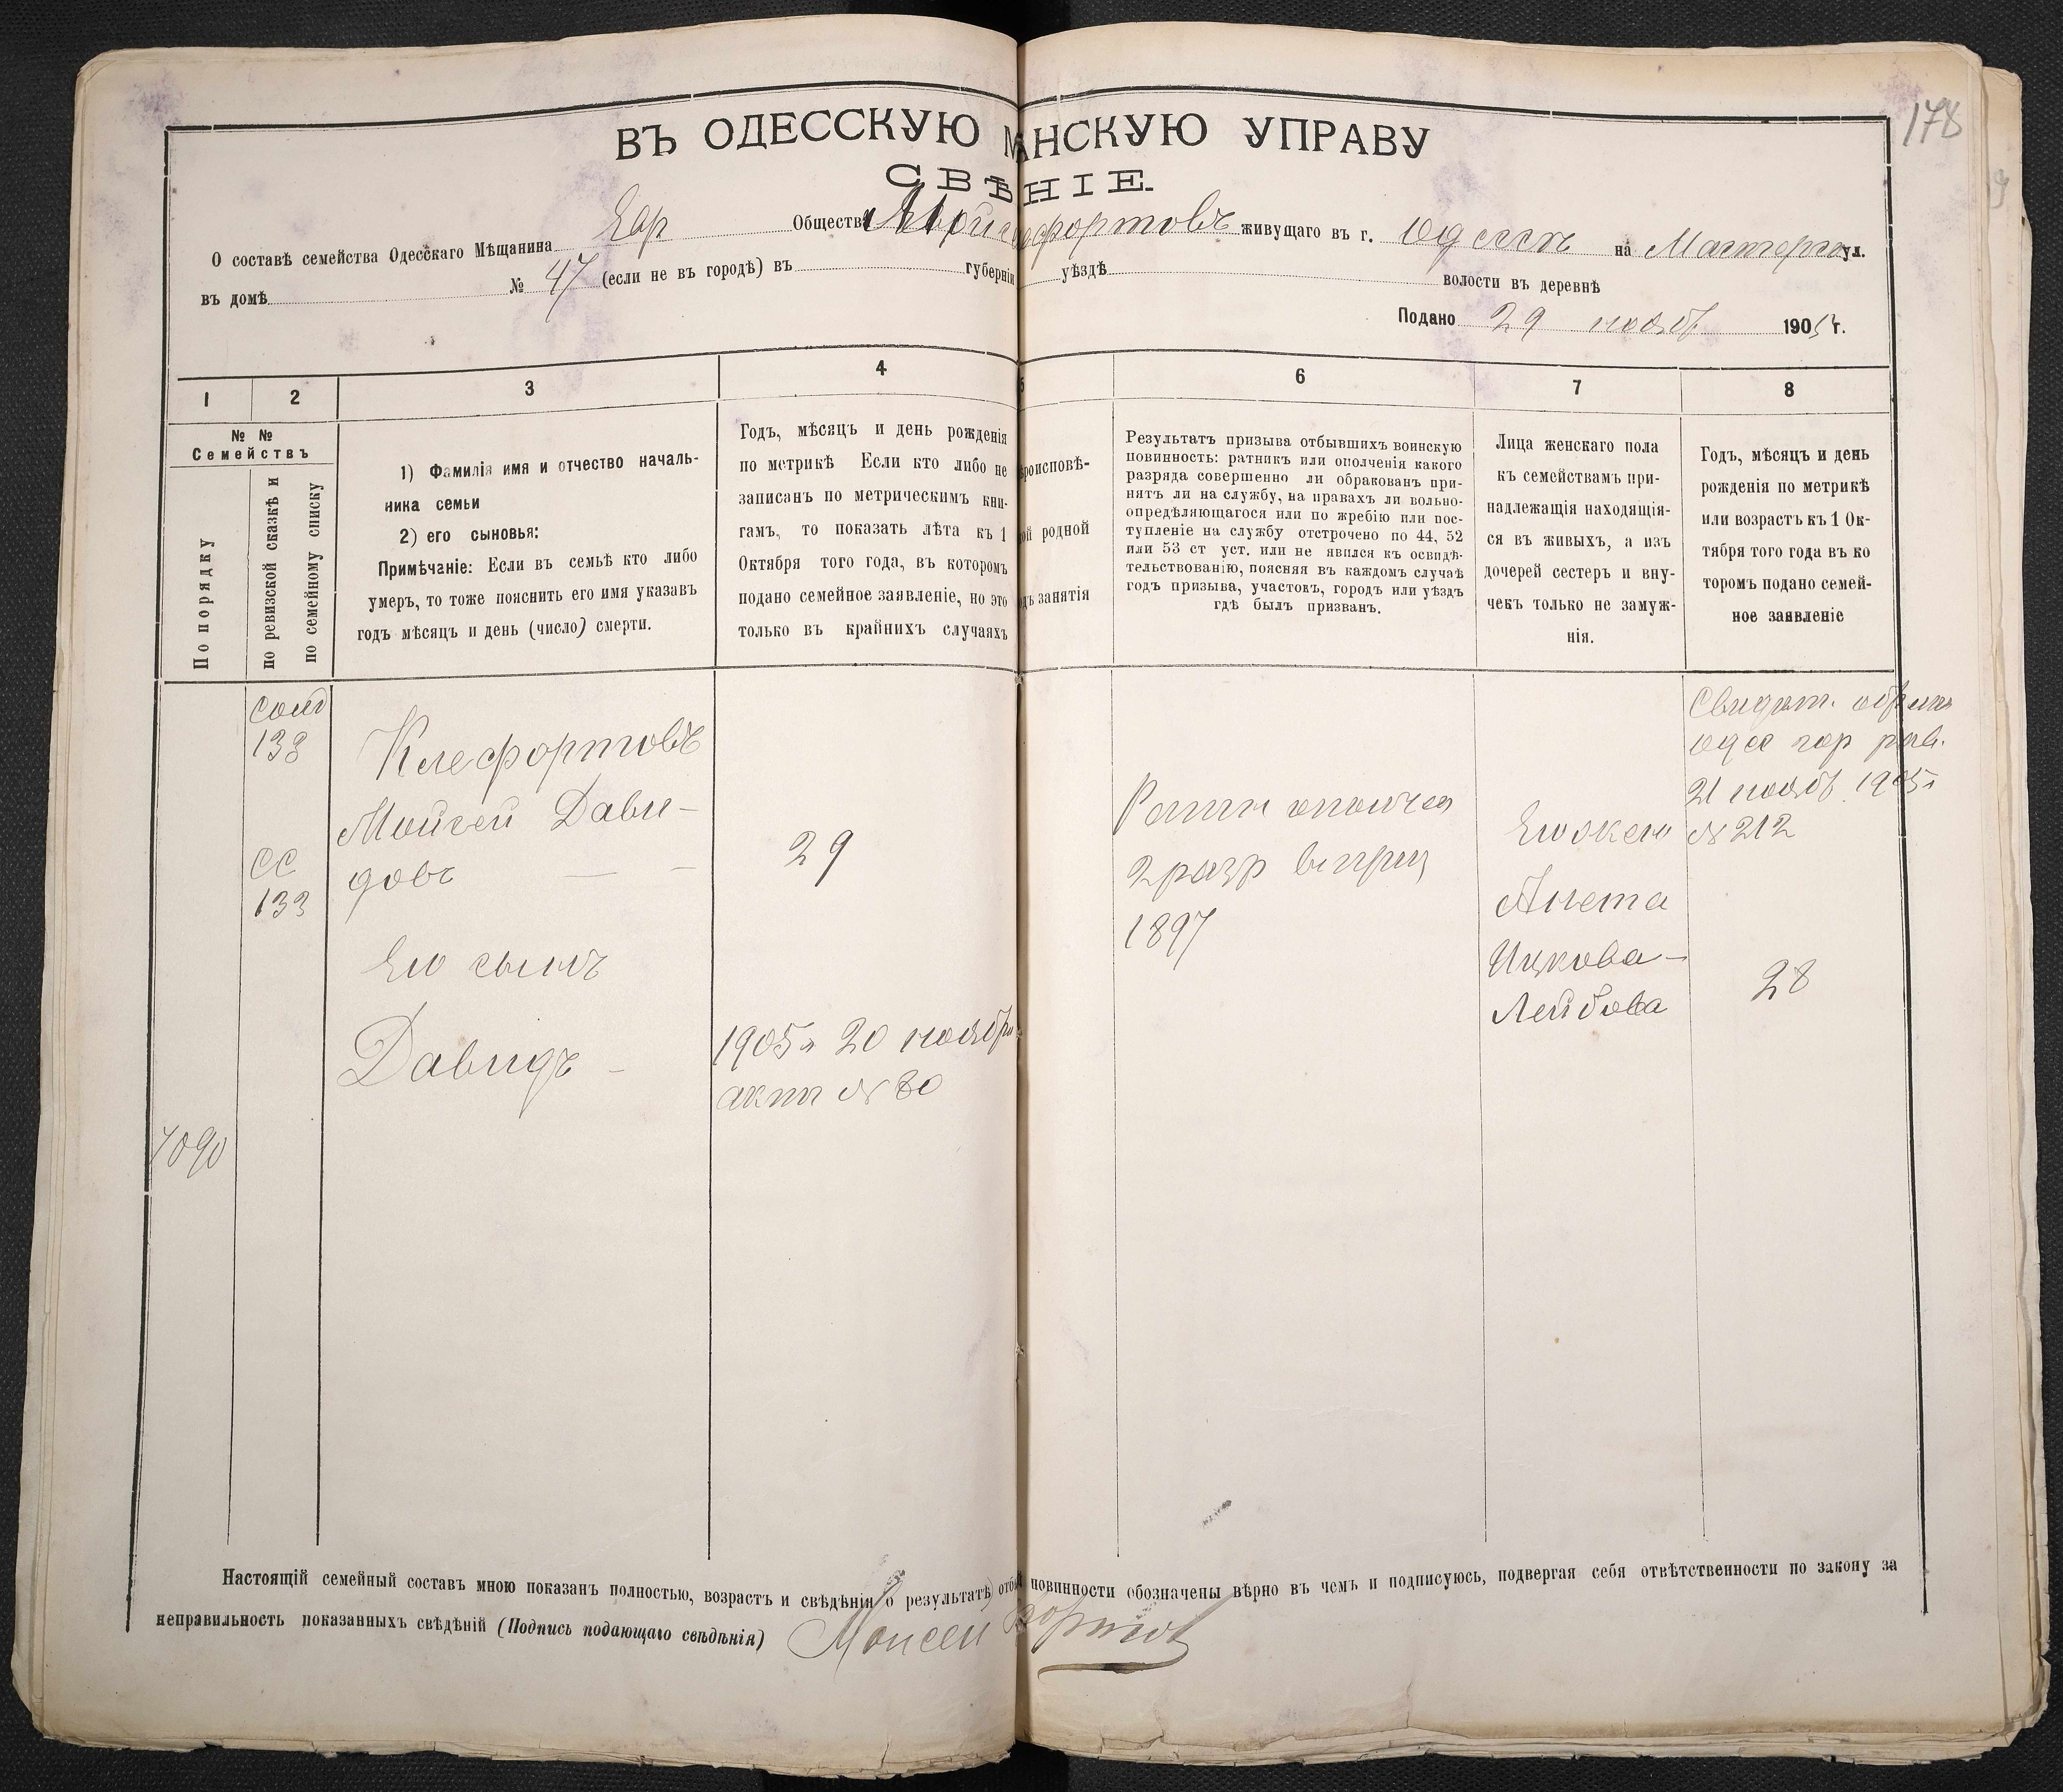 178
ВЪ ОДЕССКУЮ М НСКУЮ УПРАВУ
СВѢ НІЕ
О составѣ семейства Одесскаго Мѣщанина Евр Общества Мойс фортовъ живущаго въ г. Одессѣ на Мастерск ул.
въ домѣ № 47 (если не въ городѣ) въ губерніи уѣздѣ волости въ деревнѣ
Подано 29 нояб 1905 г.
1 2 3 4 5 6 7 8
№ №
Семействъ
По порядку
по ревизской сказкѣ и
по семейному списку
1) Фамилія имя и отчество началь-
ника семьи
2) его сыновья:
Примѣчаніе: Если въ семьѣ кто либо
умеръ, то тоже пояснить его имя указавъ
годъ мѣсяцъ и день (число) смерти.
Годъ, мѣсяцъ и день рожденія
по метрикѣ Если кто либо не
записанъ по метрическимъ кни-
гамъ, то показать лѣта къ 1
Октября того года, въ которомъ
подано семейное заявленіе, но это
только въ крайнихъ случаяхъ
роисповѣ-
ой родной
дъ занятія
Результатъ призыва отбывшихъ воинскую
повинность: ратникъ или ополченія какого
разряда совершенно ли обракованъ при-
нятъ ли на службу, на правахъ ли вольно-
опредѣляющагося или по жребію или пос-
тупленіе на службу отстрочено по 44, 52
или 53 ст уст. или не явился къ освидѣ-
тельствованію, поясняя въ каждомъ случаѣ
годъ призыва, участокъ, городъ или уѣздъ
гдѣ былъ призванъ.
Лица женскаго пола
къ семействамъ при-
надлежащія находящія-
ся въ живыхъ, а изъ
дочерей сестеръ и вну-
чекъ только не замуж-
нія.
Годъ, мѣсяцъ и день
рожденія по метрикѣ
или возрастъ къ 1 Ок-
тября того года въ ко
торомъ подано семей-
ное заявленіе
133
СС
133
Клефортовъ
Мойсей Дави-
довъ
29
Его сынъ
Давидъ
1905 г 20 ноября
актъ № 80
7090
Ратн ополчен
2 разр въ приз
1897
Его жена
Анета
Ицкова-
Лейбова
Свидѣт.
Одес гор рав.
21 нояб. 1905 г
№ 212
28
Настоящій семейный составъ мною показанъ полностью, возрастъ и свѣдѣнія о результатѣ отбы повинности обозначены вѣрно въ чемъ и подписуюсь, подвергая себя отвѣтственности по закону за
неправильность показанныхъ свѣдѣній (Подпись подающаго свѣдѣнія) Моисей Фортов